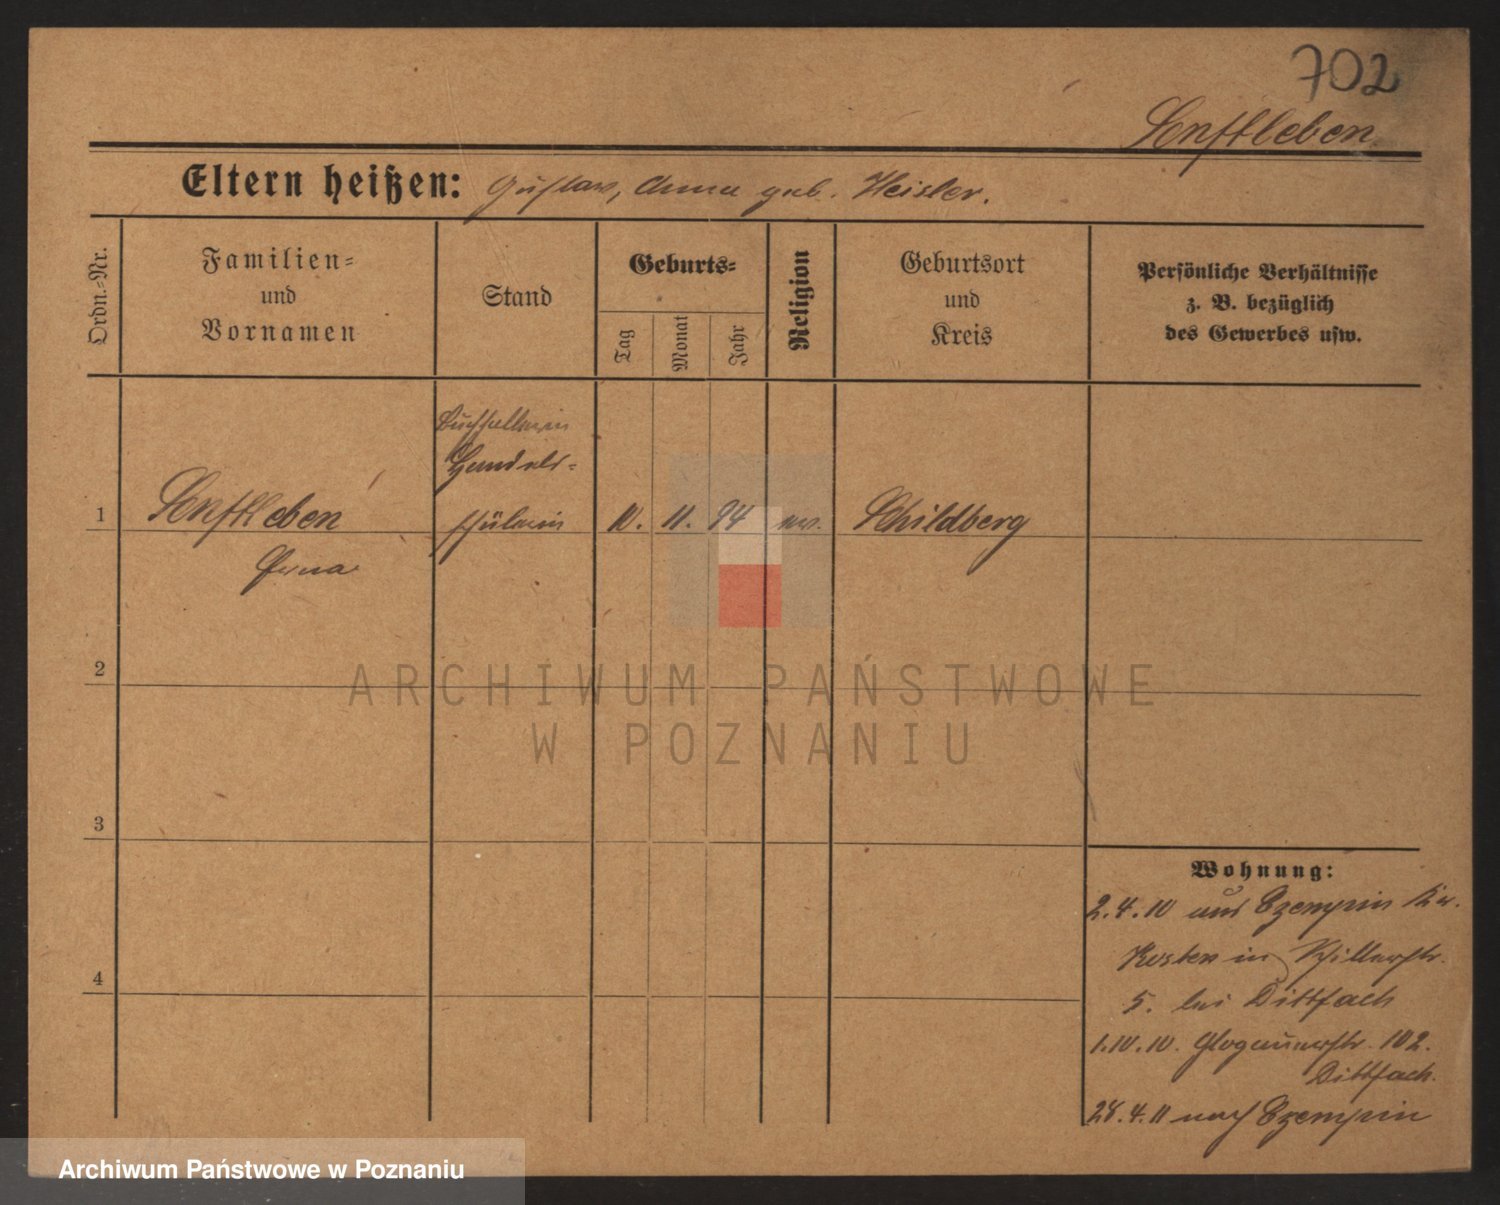 702
Senftleben
Eltern heißen: Gustav, Anna geb. Heisler.
Ordn.-Nr.
Familien-
und
Vornamen
Stand
Geburts-
Tag
Monat
Jahr
Religion
Geburtsort
und
Kreis
Persönliche Verhältnisse
z. B. bezüglich
des Gewerbes usw.
Buchhalterin
Handels-
1 Senftleben schülerin 10. 11. 94 ev. Schildberg
Erna
2
3
4
Wohnung:
2.4.10 aus Czempin Kr.
Kosten in Schillerstr.
5. bei Dittfach
1.10.10. Glogauerstr. 102.
Dittfach.
28.4.11 nach Czempin
ARCHIWUM PAŃSTWOWE
W POZNANIU
Archiwum Państwowe w Poznaniu